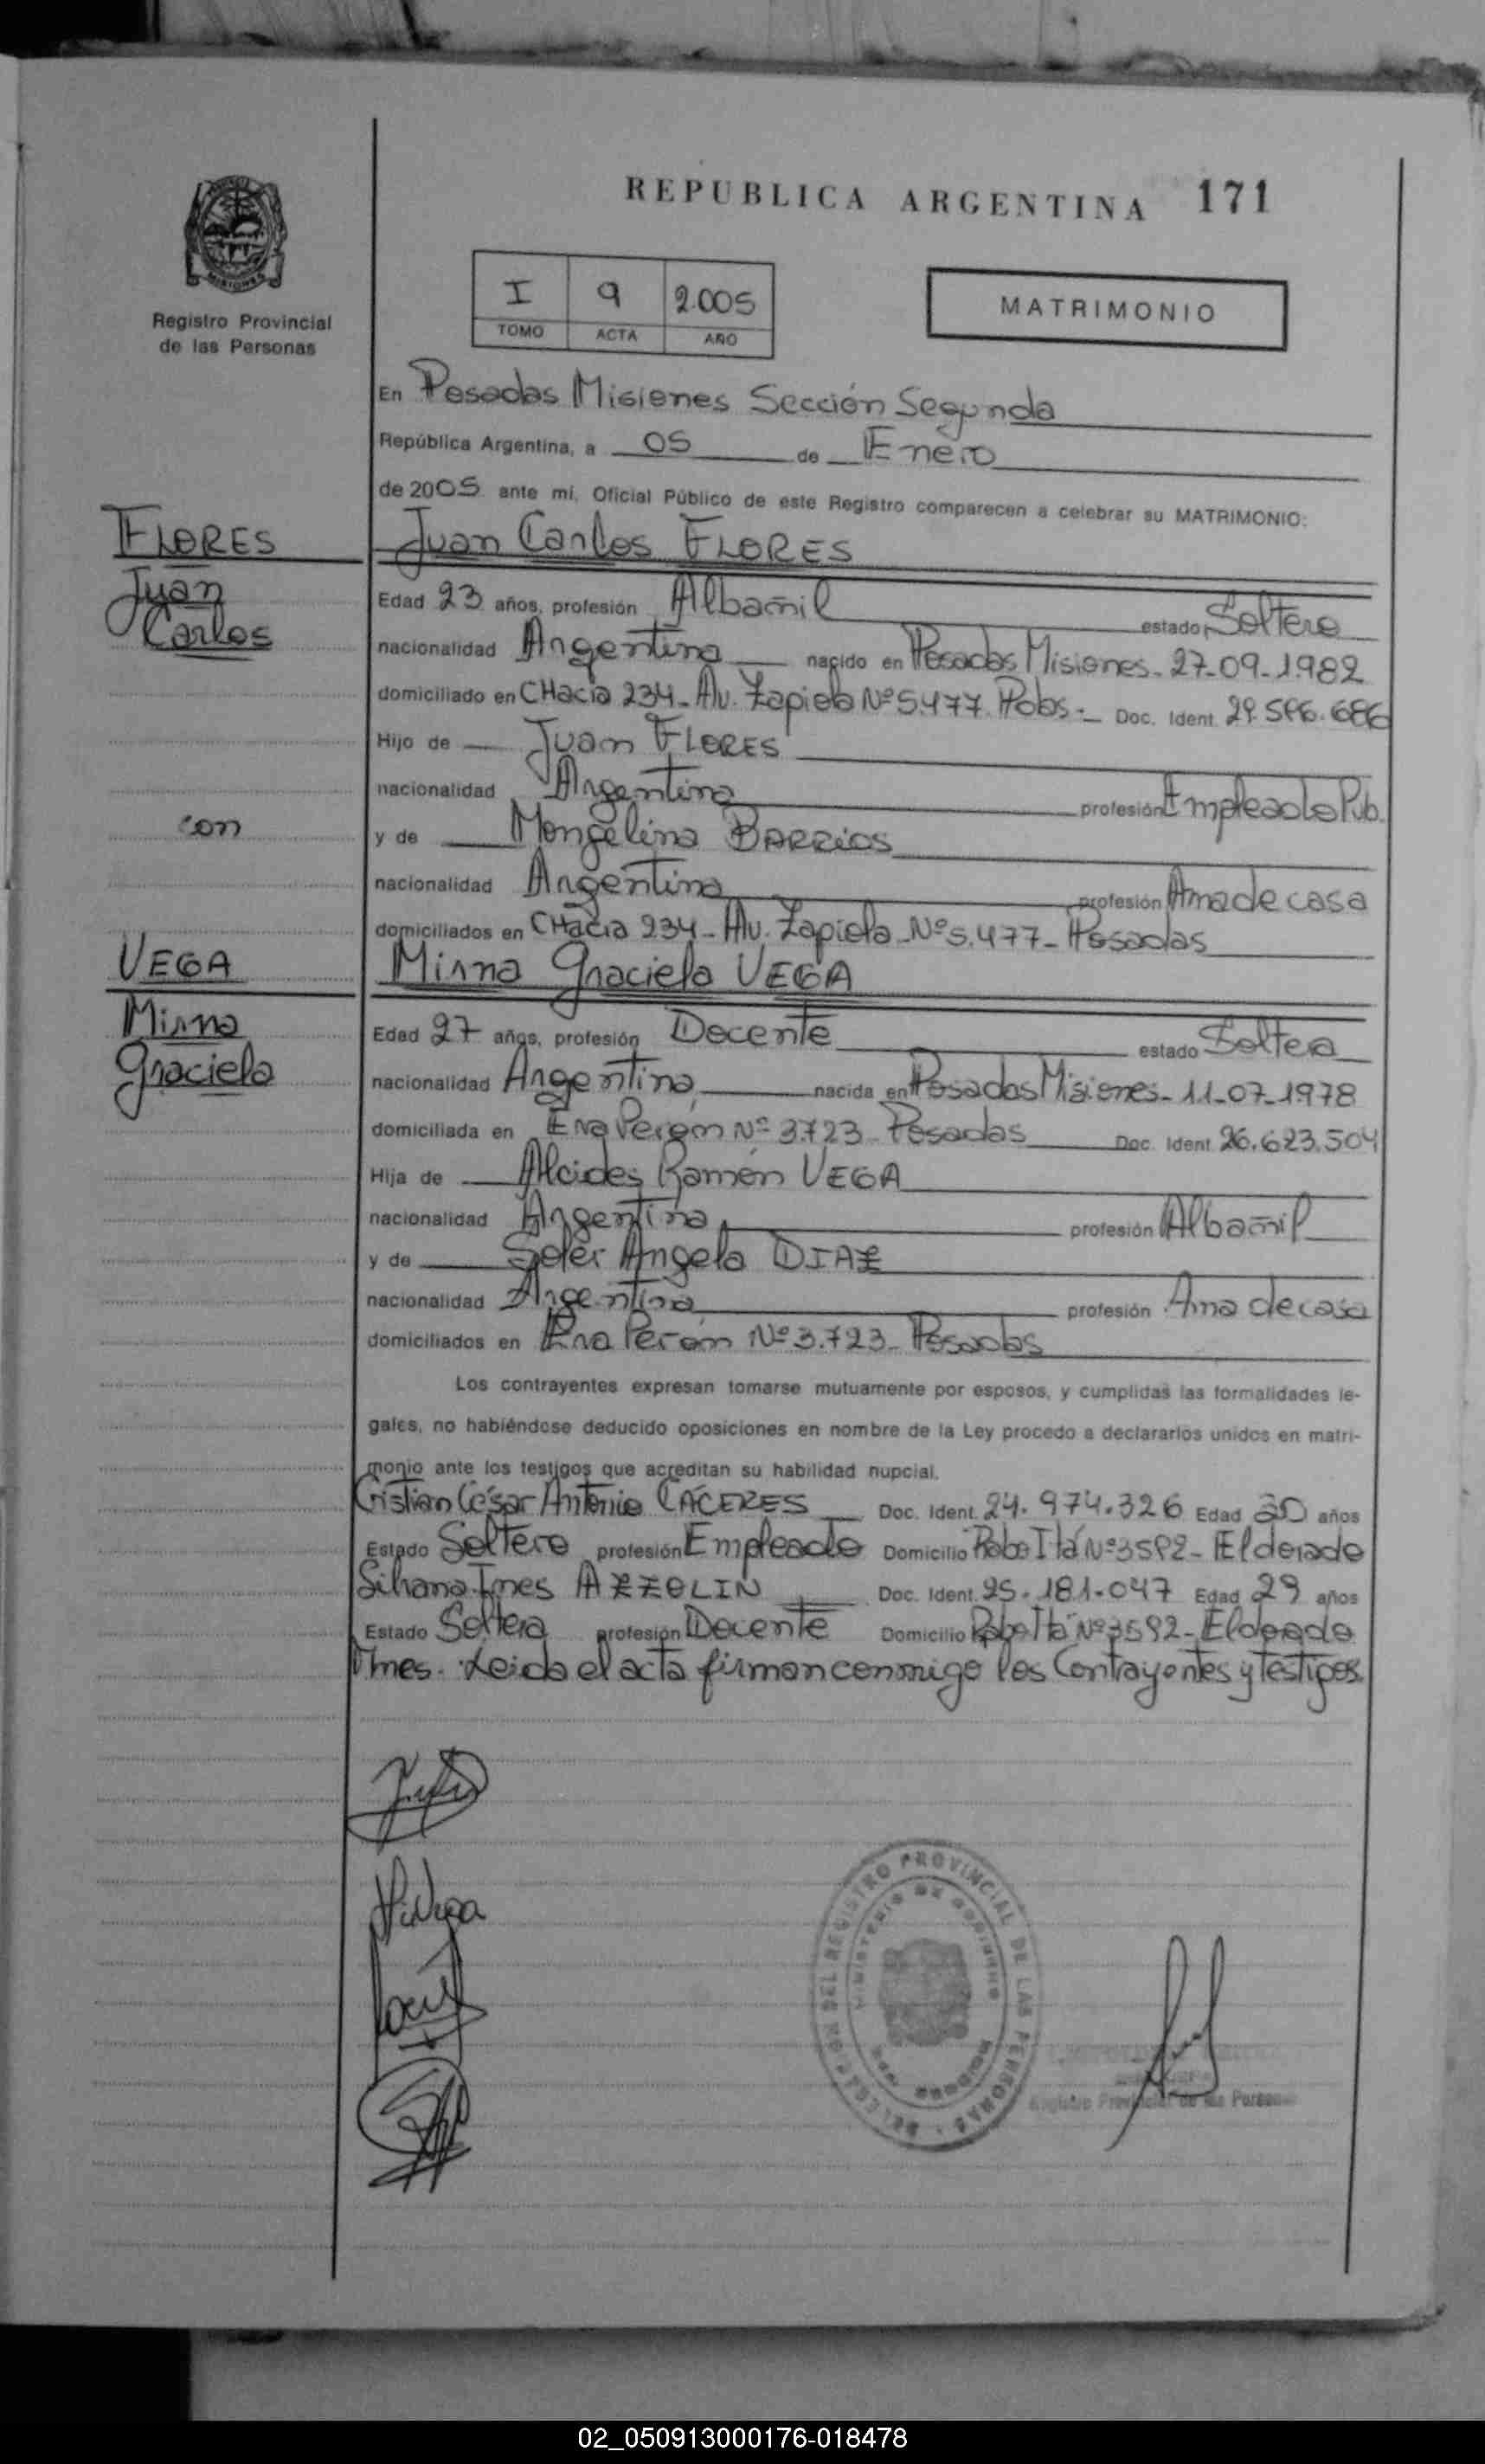 REPUBLICA ARGENTINA 171
Registro Provincial
de las Personas
I 9 2.005
TOMO ACTA AÑO
MATRIMONIO
En Posadas Misiones Sección Segunda
República Argentina, a 05 de Enero
de 2005 ante mí, Oficial Público de este Registro comparecen a celebrar su MATRIMONIO:
FLORES
Juan
Carlos
con
VEGA
Mirna
Graciela
Juan Carlos FLORES
Edad 23 años, profesión Albañil estado Soltero
nacionalidad Argentina nacido en Posadas Misiones - 27-09-1982
domiciliado en CHacra 234 - Av. Zapiola Nº 5.477 Pdas. - Doc. Ident. 29.586.686
Hijo de Juan FLORES
nacionalidad Argentina profesión Empleado Pub.
y de BARRIOS
nacionalidad Argentina profesión Ama de casa
domiciliados en CHacra 234 - Av. Zapiola - Nº 5.477 - Posadas
Mirna Graciela VEGA
Edad 27 años, profesión Docente estado Soltera
nacionalidad Argentina nacida en Posadas Misiones - 11-07-1978
domiciliada en Eva Perón Nº 3.723 - Posadas Doc. Ident. 26.623.504
Hija de Alcides Ramón VEGA
nacionalidad Argentina profesión Albañil
y de Soler Angela DIAZ
nacionalidad Argentina profesión Ama de casa
domiciliados en Eva Perón Nº 3.723 - Posadas
Los contrayentes expresan tomarse mutuamente por esposos, y cumplidas las formalidades le-
gales, no habiéndose deducido oposiciones en nombre de la Ley procedo a declararlos unidos en matri-
monio ante los testigos que acreditan su habilidad nupcial.
Cristian César Antonio CÁCERES Doc. Ident. 24.974.326 Edad 30 años
Estado Soltero profesión Empleado Domicilio Itá Nº 3592 - Eldorado
Silvana Ines AZZOLIN Doc. Ident. 25.181.047 Edad 29 años
Estado Soltera profesión Docente Domicilio Itá Nº 3592 - Eldorado
Mnes. Leida el acta firman conmigo los Contrayentes y Testigos.
DELEGACION DEL REGISTRO PROVINCIAL DE LAS PERSONAS
MINISTERIO DE GOBIERNO
Registro Provincial de las Personas
02_050913000176-018478